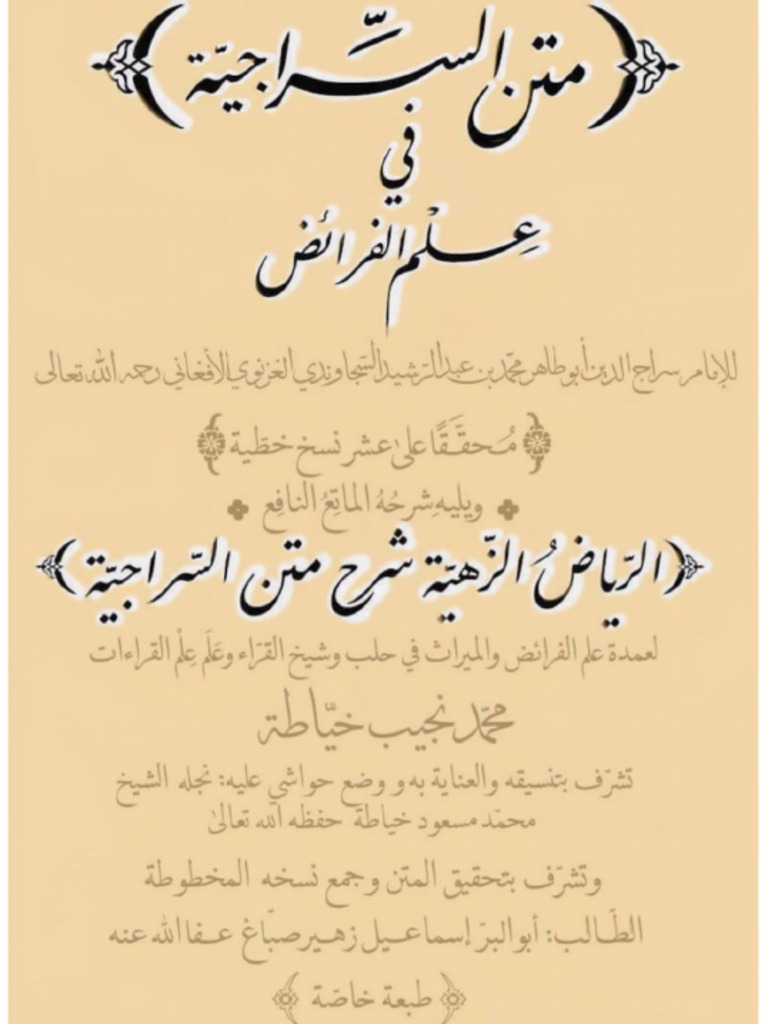 متن السِّراجيّة
في
عِلْم الفرائض
للإمام سراج الدين أبو طاهر محمّد بن عبد الرّشيد السّجاوندي الغزنوي الأفغاني رحمه الله تعالى
مُحقَّقًا على عشر نسخ خطّية
ويليه شرحُهُ الماتِعُ النافِع
الرّياضُ الزّهيّة شرح متن السّراجيّة
لعمدة علم الفرائض والميراث في حلب وشيخ القرّاء وعَلَم عِلْم القراءات
محمّد نجيب خيّاطة
تشرّف بتنسيقه والعناية به و وضع حواشي عليه: نجله الشيخ
محمّد مسعود خياطة حفظه الله تعالىٰ
وتشرّف بتحقيق المتن وجمع نسخه المخطوطة
الطّالب: أبو البرّ إسماعيل زهير صبّاغ عفا الله عنه
طبعة خاصّة